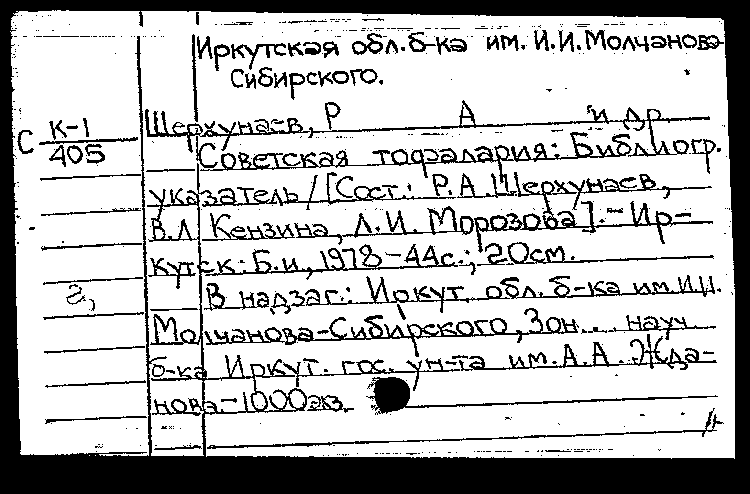 Иркутская обл. б-ка им. И.И. Молчанова-
Сибирского.
С К-1
405
Шерхунаев, Р А и др.
Советская тофалария: Библиогр.
указатель / [Сост.: Р.А. Шерхунаев,
В.Л. Кензина, Л.И. Морозова]. - Ир-
кутск: Б.и., 1978 - 44с.; 20см.
В надзаг.: Иркут. обл. б-ка им. И.И.
Молчанова-Сибирского, Зон. науч.
б-ка Иркут. гос. ун-та им. А.А. Жда-
нова. - 1000экз.